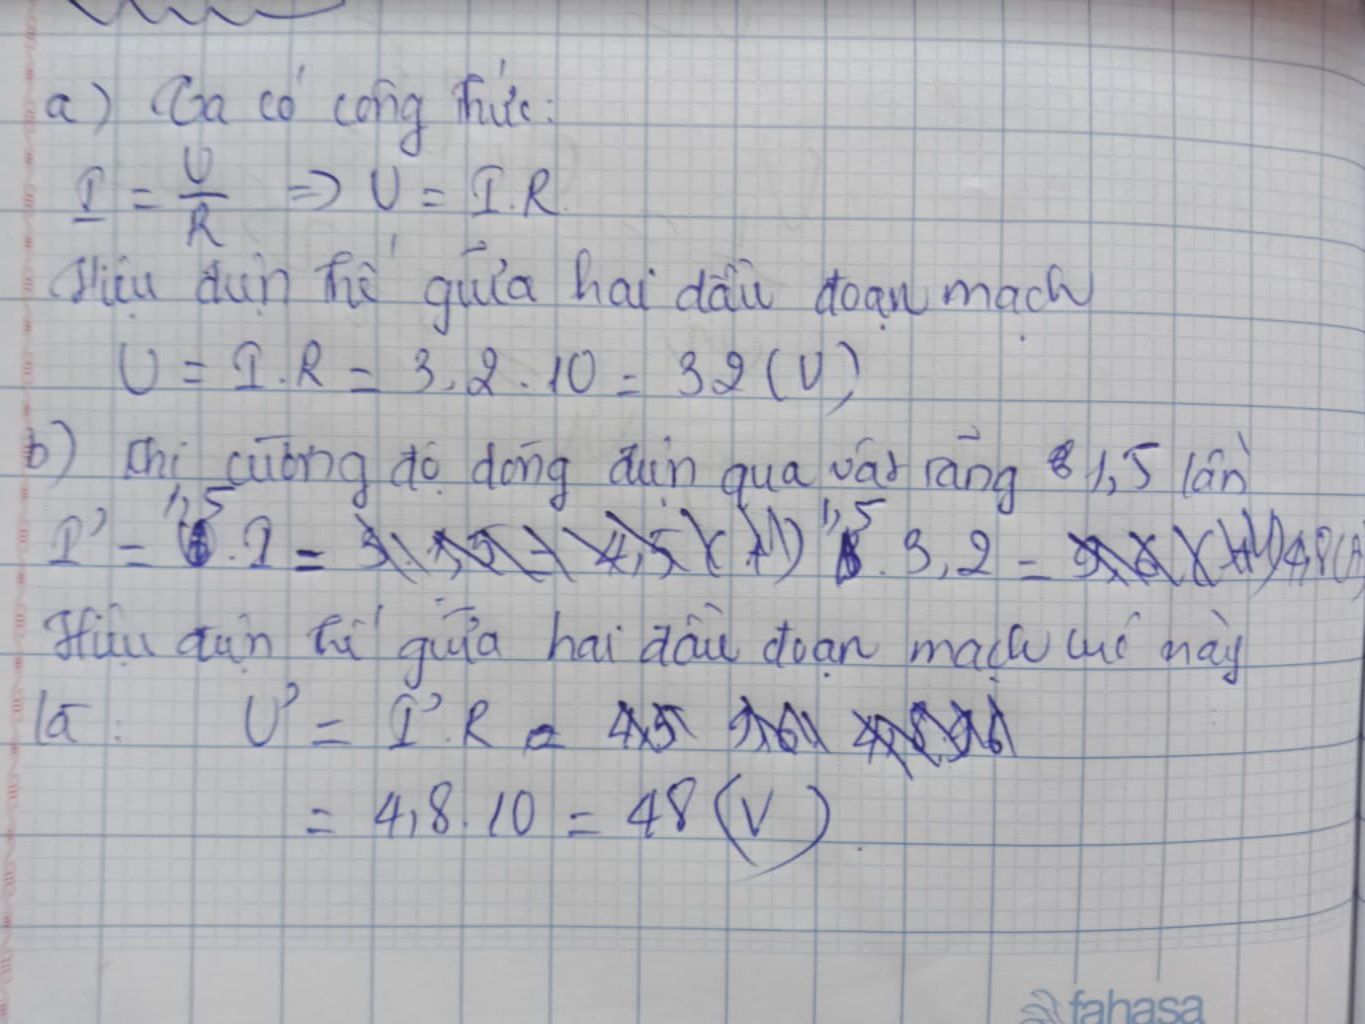 a) Ta có công thức:
I = U/R => U = I.R
Hiệu điện thế giữa hai đầu đoạn mạch
U = I.R = 3,2.10 = 32 (V)
b) Khi cường độ dòng điện qua vật tăng 1,5 lần
I' = 1,5.I = 1,5.3,2 = 4,8(A)
Hiệu điện thế giữa hai đầu đoạn mạch lúc này
là: U' = I'.R =
= 4,8.10 = 48 (V)
fahasa